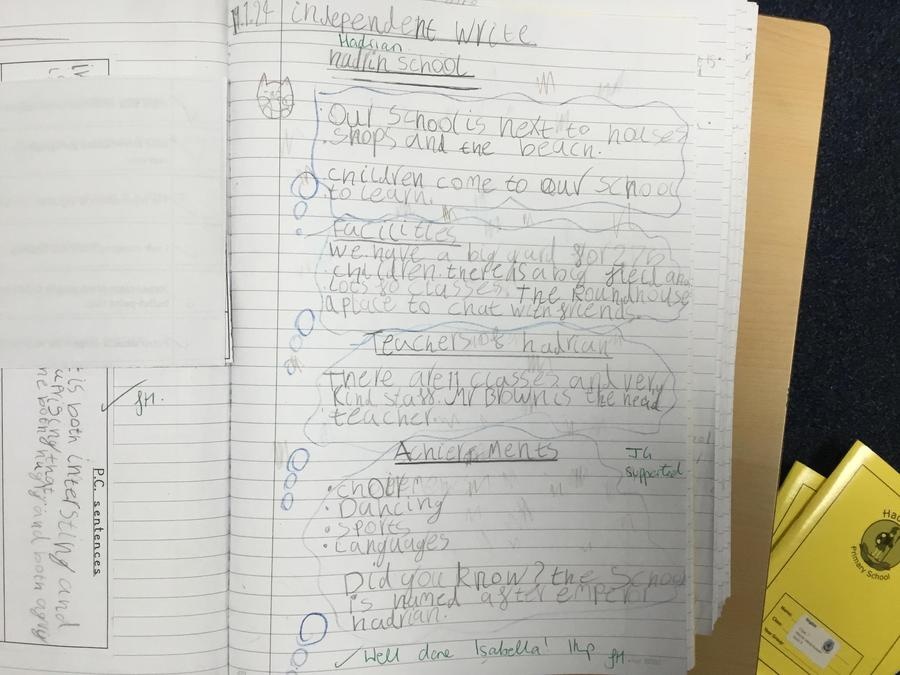 11.1.24 independent write
Hadrian
hadrin school
Our School is next to houses
shops and the beach.
children come to our school
to learn.
Facilities
We have a big yard for 276
children. there is a big field and
Lots fo classes. The Roundhouse
a place to chat with friends.
Teachers of hadrian
there are classes and very
Kind staff. Mr Brown is the head
teacher.
Achievements
JG
supported
• choir
• Dancing
• Sports
• Languages
Did you know? the School
is named after emperor
hadrian.
✓ Well done Isabella! 1hp JH.
✓ JH.
P.C. sentences
is both intersting and
uprising
both naughty and both angry
Primary School
Name:
Class:
Year Group: